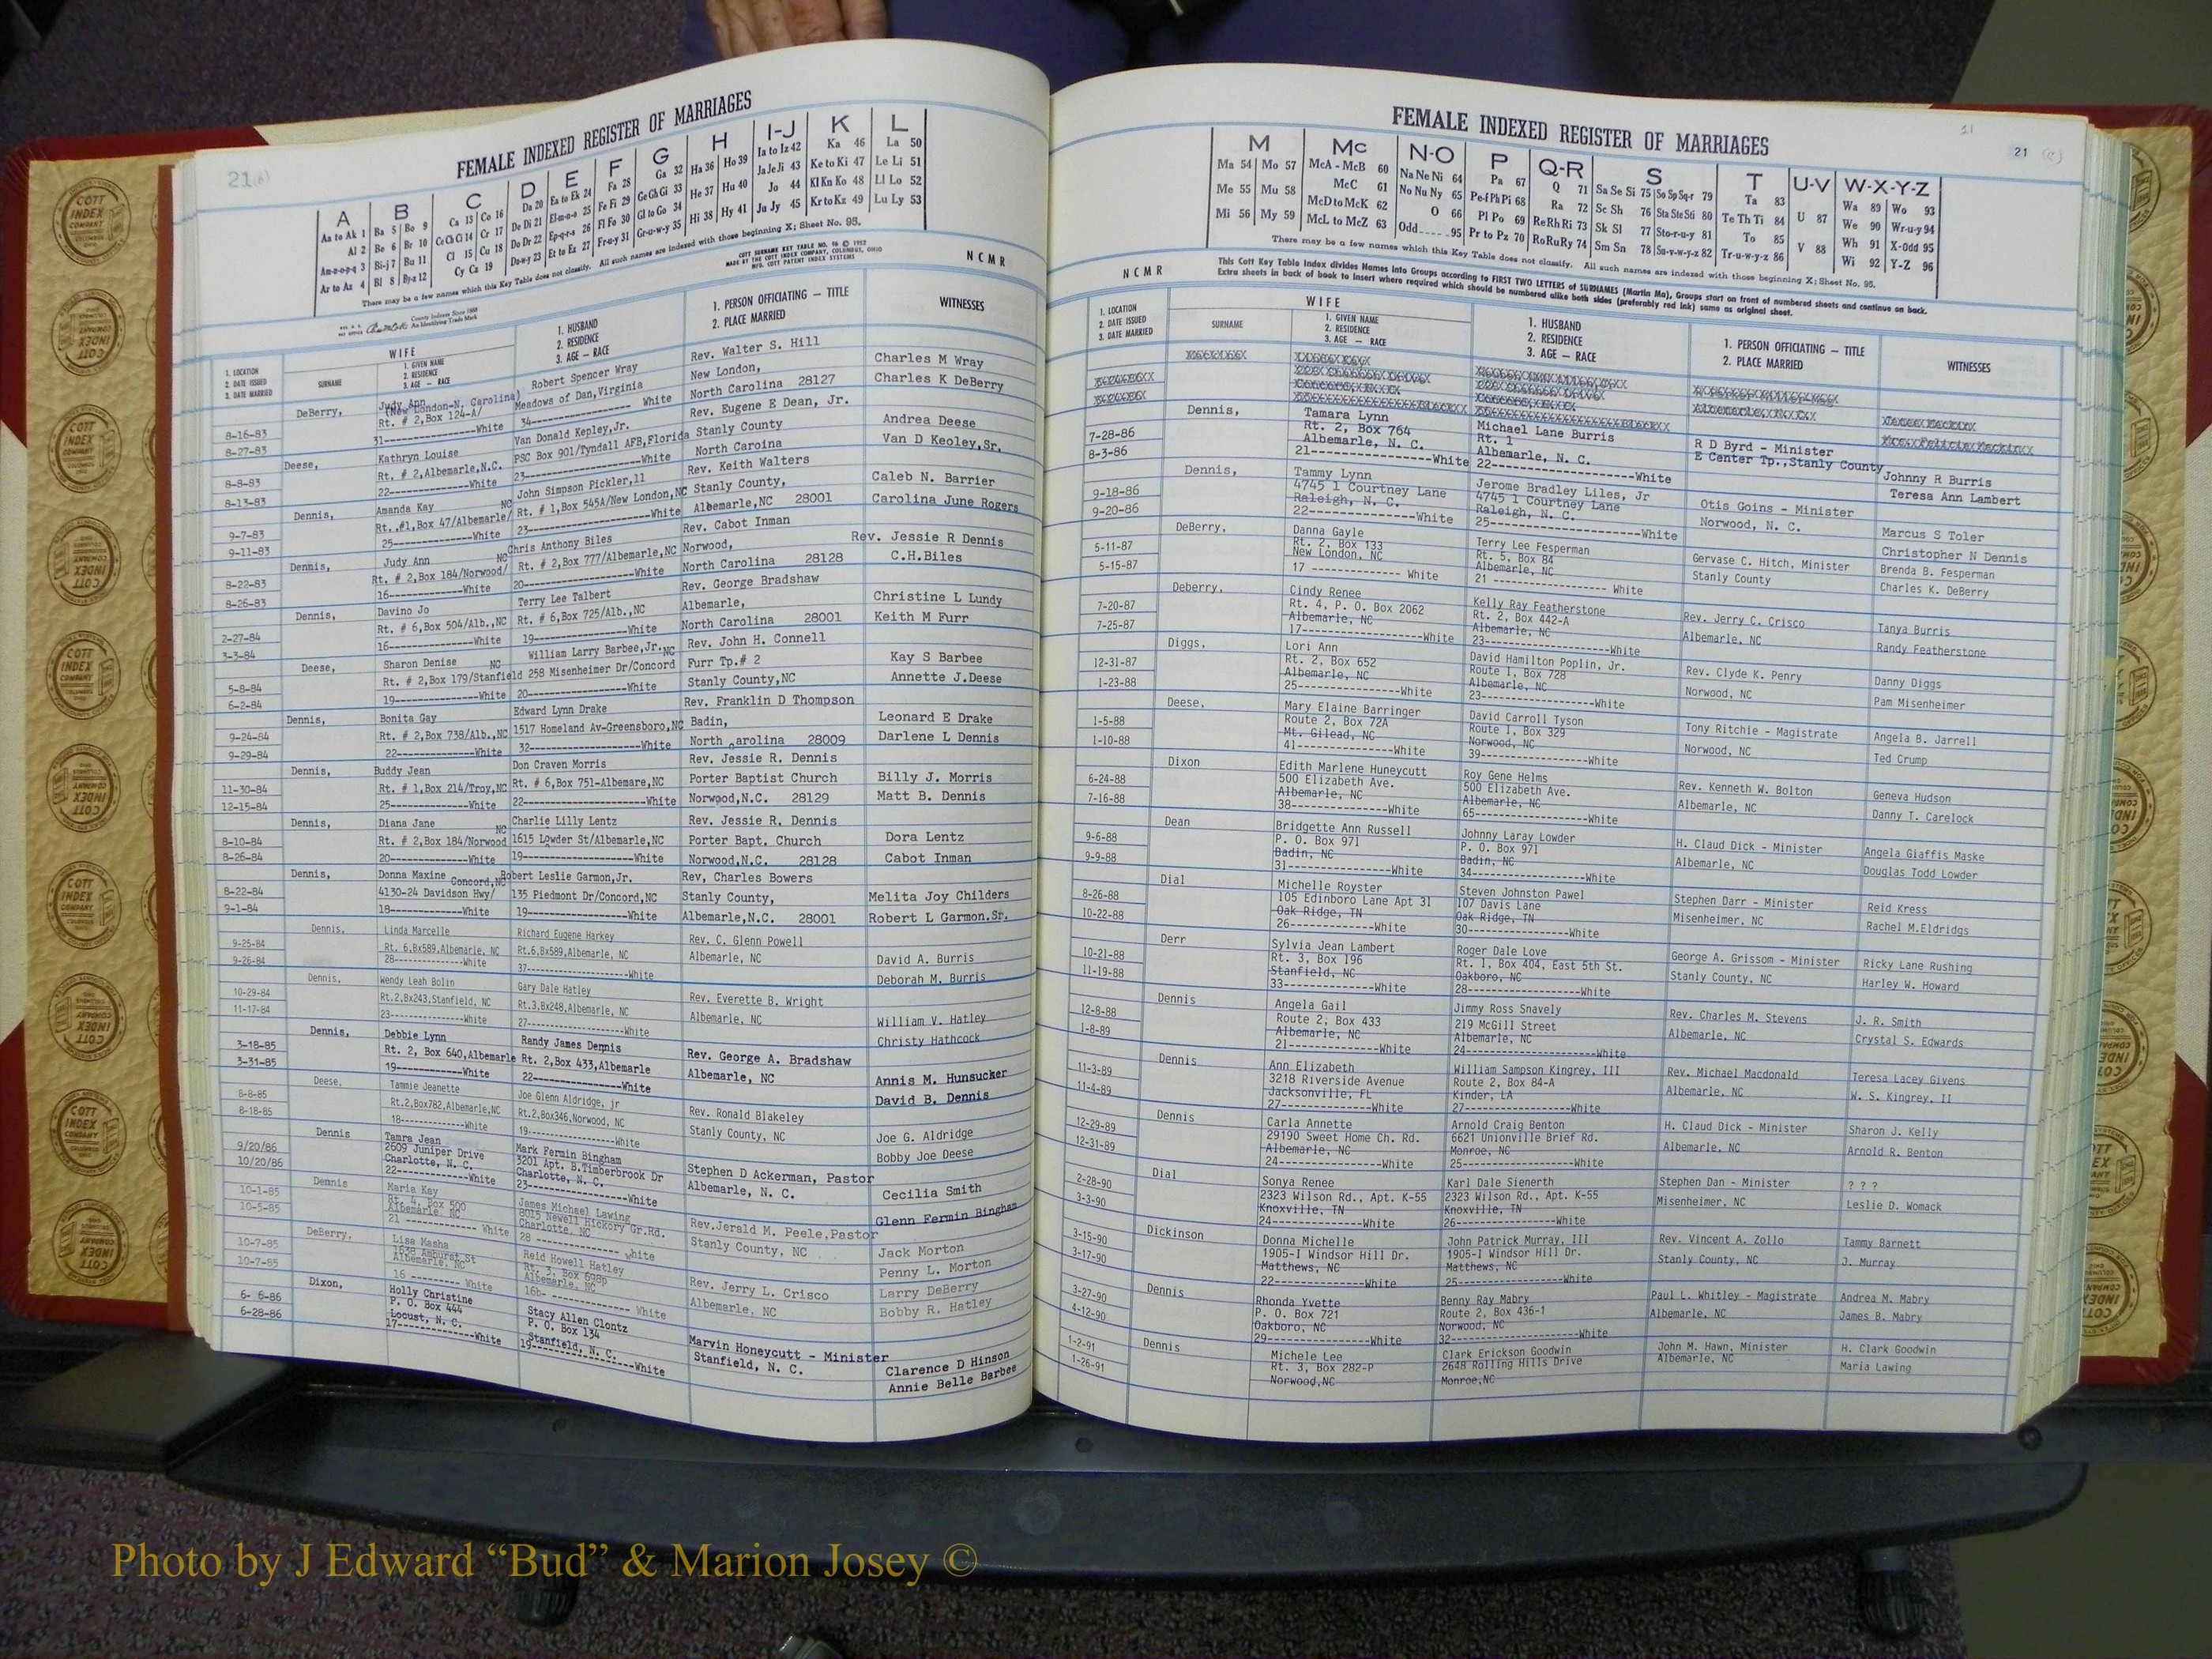 21(b)
FEMALE INDEXED REGISTER OF MARRIAGES
A B C D E F G H I-J K L
Aa to Ak 1 Ba 5 Bo 9 Ca 13 Co 16 Da 20 Ea to Ek 24 Fa 28 Ga 32 Ha 36 Ho 39 Ia to Iz 42 Ka 46 La 50
Al 2 Be 6 Br 10 Ce Ch Ci 14 Cr 17 De Di 21 El-m-n-o 25 Fe Fi 29 Ge Gh Gi 33 He 37 Hu 40 Ja Je Ji 43 Ke to Ki 47 Le Li 51
Am-n-o-p-q 3 Bi-j 7 Bu 11 Cl 15 Cu 18 Do Dr 22 Ep-q-r-s 26 Fl Fo 30 Gl to Go 34 Hi 38 Hy 41 Jo 44 Kl Kn Ko 48 Ll Lo 52
Ar to Az 4 Bl 8 By-z 12 Cy Cz 19 Du-w-y 23 Et to Ez 27 Fr-u-y 31 Gr-u-w-y 35 Ju Jy 45 Kr to Kz 49 Lu Ly 53
There may be a few names which this Key Table does not classify. All such names are indexed with those beginning X; Sheet No. 95.
COTT SURNAME KEY TABLE NO. 96 © 1952
MADE BY THE COTT INDEX COMPANY, COLUMBUS, OHIO
MFG. COTT PATENT INDEX SYSTEMS
NCMR
County Indexes Since 1888
An Identifying Trade Mark
1. LOCATION
2. DATE ISSUED
3. DATE MARRIED
WIFE
SURNAME
1. GIVEN NAME
2. RESIDENCE
3. AGE — RACE
1. HUSBAND
2. RESIDENCE
3. AGE — RACE
1. PERSON OFFICIATING — TITLE
2. PLACE MARRIED
WITNESSES
DeBerry, Judy Ann Robert Spencer Wray Rev. Walter S. Hill Charles M Wray
(New London-N. Carolina)
8-16-83 Rt. # 2,Box 124-A/ Meadows of Dan,Virginia New London, Charles K DeBerry
8-27-83 31----White 34---- White North Carolina 28127
Deese, Kathryn Louise Van Donald Kepley,Jr. Rev. Eugene E Dean, Jr. Andrea Deese
8-8-83 Rt. # 2,Albemarle,N.C. PSC Box 901/Tyndall AFB,Florida Stanly County Van D Keoley,Sr.
8-13-83 22----White 23----White North Caroina
Dennis, Amanda Kay NC John Simpson Pickler,11 Rev. Keith Walters Caleb N. Barrier
9-7-83 Rt. #1,Box 47/Albemarle/ Rt. # 1,Box 545A/New London,NC Stanly County, Carolina June Rogers
9-11-83 25----White 23----White Albemarle,NC 28001
Dennis, Judy Ann NC Chris Anthony Biles Rev. Cabot Inman Rev. Jessie R Dennis
8-22-83 Rt. # 2,Box 184/Norwood/ Rt. # 2,Box 777/Albemarle,NC Norwood, C.H.Biles
8-26-83 16----White 20----White North Carolina 28128
Dennis, Davino Jo Terry Lee Talbert Rev. George Bradshaw Christine L Lundy
2-27-84 Rt. # 6,Box 504/Alb.,NC Rt. # 6,Box 725/Alb.,NC Albemarle, Keith M Furr
3-3-84 16----White 19----White North Carolina 28001
Deese, Sharon Denise NC William Larry Barbee,Jr. NC Rev. John H. Connell Kay S Barbee
5-8-84 Rt. # 2,Box 179/Stanfield 258 Misenheimer Dr/Concord Furr Tp.# 2 Annette J.Deese
6-2-84 19----White 20----White Stanly County,NC
Dennis, Bonita Gay Edward Lynn Drake Rev. Franklin D Thompson Leonard E Drake
9-24-84 Rt. # 2,Box 738/Alb.,NC 1517 Homeland Av-Greensboro,NC Badin, Darlene L Dennis
9-29-84 22----White 32----White North arolina 28009
Dennis, Buddy Jean Don Craven Morris Rev. Jessie R. Dennis Billy J. Morris
11-30-84 Rt. # 1,Box 214/Troy,NC Rt. # 6,Box 751-Albemare,NC Porter Baptist Church Matt B. Dennis
12-15-84 25----White 22----White Norwood,N.C. 28129
Dennis, Diana Jane NC Charlie Lilly Lentz Rev. Jessie R. Dennis Dora Lentz
8-10-84 Rt. # 2,Box 184/Norwood 1615 Lowder St/Albemarle,NC Porter Bapt. Church Cabot Inman
8-26-84 20----White 19----White Norwood,N.C. 28128
Dennis, Donna Maxine Concord,NC Robert Leslie Garmon,Jr. Rev, Charles Bowers Melita Joy Childers
8-22-84 4130-24 Davidson Hwy/ 135 Piedmont Dr/Concord,NC Stanly County, Robert L Garmon,Sr.
9-1-84 18----White 19----White Albemarle,N.C. 28001
Dennis, Linda Marcelle Richard Eugene Harkey Rev. C. Glenn Powell David A. Burris
9-25-84 Rt. 6,Bx589,Albemarle, NC Rt.6,Bx589,Albemarle, NC Albemarle, NC Deborah M. Burris
9-26-84 28----White 37----White
Dennis, Wendy Leah Bolin Gary Dale Hatley Rev. Everette B. Wright William V. Hatley
10-29-84 Rt.2,Bx243,Stanfield, NC Rt.3,Bx248,Albemarle, NC Albemarle, NC Christy Hathcock
11-17-84 23----White 27----White
Dennis, Debbie Lynn Randy James Dennis Rev. George A. Bradshaw Annis M. Hunsucker
3-18-85 Rt. 2, Box 640,Albemarle Rt. 2,Box 433,Albemarle Albemarle, NC David B. Dennis
3-31-85 19----White 22----White
Deese, Tammie Jeanette Joe Glenn Aldridge, jr Rev. Ronald Blakeley Joe G. Aldridge
8-8-85 Rt.2,Box782,Albemarle,NC Rt.2,Box346,Norwood, NC Stanly County, NC Bobby Joe Deese
8-18-85 18----White 19----White
Dennis Tamra Jean Mark Fermin Bingham Stephen D Ackerman, Pastor Cecilia Smith
9/20/86 2609 Juniper Drive 3201 Apt. B.Timberbrook Dr Albemarle, N. C. Glenn Fermin Bingham
10/20/86 Charlotte, N. C. Charlotte, N. C.
22----White 23----White
Dennis Maria Kay James Michael Lawing Rev.Jerald M. Peele,Pastor Jack Morton
10-1-85 Rt. 4, Box 500 8015 Newell Hickory Gr.Rd. Stanly County, NC Penny L. Morton
10-5-85 Albemarle NC Charlotte, NC
21 ---- White 28 ---- white
DeBerry, Lisa Masha Reid Howell Hatley Rev. Jerry L. Crisco Larry DeBerry
10-7-85 1638 Amhurst St Rt. 3, Box 698p Albemarle, NC Bobby R. Hatley
10-7-85 Albemarle, NC Albemarle, NC
16 ---- White 16b- ---- White
Dixon, Holly Christine Stacy Allen Clontz Marvin Honeycutt - Minister Clarence D Hinson
6- 6-86 P. O. Box 444 P. O. Box 134 Stanfield, N. C. Annie Belle Barbee
6-28-86 Locust, N. C. Stanfield, N. C.
17----White 19----White
21
21 (c)
FEMALE INDEXED REGISTER OF MARRIAGES
M Mc N-O P Q-R S T U-V W-X-Y-Z
Ma 54 Mo 57 McA - McB 60 Na Ne Ni 64 Pa 67 Q 71 Sa Se Si 75 So Sp Sq-r 79 Ta 83 Wa 89 Wo 93
Me 55 Mu 58 McC 61 No Nu Ny 65 Pe-f Ph Pi 68 Ra 72 Sc Sh 76 Sta Ste Sti 80 Te Th Ti 84 U 87 We 90 Wr-u-y 94
Mi 56 My 59 McD to McK 62 O 66 Pl Po 69 Re Rh Ri 73 Sk Sl 77 Sto-r-u-y 81 To 85 Wh 91 X-Odd 95
McL to McZ 63 Odd 95 Pr to Pz 70 Ro Ru Ry 74 Sm Sn 78 Su-v-w-y-z 82 Tr-u-w-y-z 86 V 88 Wi 92 Y-Z 96
There may be a few names which this Key Table does not classify. All such names are indexed with those beginning X; Sheet No. 95.
This Cott Key Table Index divides Names into Groups according to FIRST TWO LETTERS of SURNAMES (Martin Ma), Groups start on front of numbered sheets and continue on back.
Extra sheets in back of book to insert where required which should be numbered alike both sides (preferably red ink) same as original sheet.
NCMR
1. LOCATION
2. DATE ISSUED
3. DATE MARRIED
WIFE
SURNAME
1. GIVEN NAME
2. RESIDENCE
3. AGE - RACE
1. HUSBAND
2. RESIDENCE
3. AGE — RACE
1. PERSON OFFICIATING — TITLE
2. PLACE MARRIED
WITNESSES
Dennis, Tamara Lynn Michael Lane Burris R D Byrd - Minister Johnny R Burris
7-28-86 Rt. 2, Box 764 Rt. 1 E Center Tp.,Stanly County Teresa Ann Lambert
8-3-86 Albemarle, N. C. Albemarle, N. C.
21----White 22----White
Dennis, Tammy Lynn Jerome Bradley Liles, Jr Otis Goins - Minister Marcus S Toler
9-18-86 4745 1 Courtney Lane 4745 1 Courtney Lane Norwood, N. C. Christopher N Dennis
9-20-86 Raleigh, N. C. Raleigh, N. C.
22----White 25----White
DeBerry, Danna Gayle Terry Lee Fesperman Gervase C. Hitch, Minister Brenda B. Fesperman
5-11-87 Rt. 2, Box 133 Rt. 5, Box 84 Stanly County Charles K. DeBerry
5-15-87 New London, NC Albemarle, NC
17 ---- White 21 ---- White
Deberry, Cindy Renee Kelly Ray Featherstone Rev. Jerry C. Crisco Tanya Burris
7-20-87 Rt. 4, P. O. Box 2062 Rt. 2, Box 442-A Albemarle, NC Randy Featherstone
7-25-87 Albemarle, NC Albemarle, NC
17----White 23----White
Diggs, Lori Ann David Hamilton Poplin, Jr. Rev. Clyde K. Penry Danny Diggs
12-31-87 Rt. 2, Box 652 Route 1, Box 728 Norwood, NC Pam Misenheimer
1-23-88 Albemarle, NC Albemarle, NC
25----White 23----White
Deese, Mary Elaine Barringer David Carroll Tyson Tony Ritchie - Magistrate Angela B. Jarrell
1-5-88 Route 2, Box 72A Route 1, Box 329 Norwood, NC Ted Crump
1-10-88 Mt. Gilead, NC Norwood, NC
41----White 39----White
Dixon Edith Marlene Huneycutt Roy Gene Helms Rev. Kenneth W. Bolton Geneva Hudson
6-24-88 500 Elizabeth Ave. 500 Elizabeth Ave. Albemarle, NC Danny T. Carelock
7-16-88 Albemarle, NC Albemarle, NC
38----White 65----White
Dean Bridgette Ann Russell Johnny Laray Lowder H. Claud Dick - Minister Angela Giaffis Maske
9-6-88 P. O. Box 971 P. O. Box 971 Albemarle, NC Douglas Todd Lowder
9-9-88 Badin, NC Badin, NC
31----White 34----White
Dial Michelle Royster Steven Johnston Pawel Stephen Darr - Minister Reid Kress
8-26-88 105 Edinboro Lane Apt 31 107 Davis Lane Misenheimer, NC Rachel M.Eldridgs
10-22-88 Oak Ridge, TN Oak Ridge, TN
26----White 30----White
Derr Sylvia Jean Lambert Roger Dale Love George A. Grissom - Minister Ricky Lane Rushing
10-21-88 Rt. 3, Box 196 Rt. 1, Box 404, East 5th St. Stanly County, NC Harley W. Howard
11-19-88 Stanfield, NC Oakboro, NC
33----White 28----White
Dennis Angela Gail Jimmy Ross Snavely Rev. Charles M. Stevens J. R. Smith
12-8-88 Route 2, Box 433 219 McGill Street Albemarle, NC Crystal S. Edwards
1-8-89 Albemarle, NC Albemarle, NC
21----White 24----White
Dennis Ann Elizabeth William Sampson Kingrey, III Rev. Michael Macdonald Teresa Lacey Givens
11-3-89 3218 Riverside Avenue Route 2, Box 84-A Albemarle, NC W. S. Kingrey, II
11-4-89 Jacksonville, FL Kinder, LA
27----White 27----White
Dennis Carla Annette Arnold Craig Benton H. Claud Dick - Minister Sharon J. Kelly
12-29-89 29190 Sweet Home Ch. Rd. 6621 Unionville Brief Rd. Albemarle, NC Arnold R. Benton
12-31-89 Albemarle, NC Monroe, NC
24----White 25----White
Dial Sonya Renee Karl Dale Sienerth Stephen Dan - Minister ? ? ?
2-28-90 2323 Wilson Rd., Apt. K-55 2323 Wilson Rd., Apt. K-55 Misenheimer, NC Leslie D. Womack
3-3-90 Knoxville, TN Knoxville, TN
24----White 26----White
Dickinson Donna Michelle John Patrick Murray, III Rev. Vincent A. Zollo Tammy Barnett
3-15-90 1905-I Windsor Hill Dr. 1905-I Windsor Hill Dr. Stanly County, NC J. Murray
3-17-90 Matthews, NC Matthews, NC
22----White 25----White
Dennis Rhonda Yvette Benny Ray Mabry Paul L. Whitley - Magistrate Andrea M. Mabry
3-27-90 P. O. Box 721 Route 2, Box 436-1 Albemarle, NC James B. Mabry
4-12-90 Oakboro, NC Norwood, NC
29----White 32----White
Dennis Michele Lee Clark Erickson Goodwin John M. Hawn, Minister H. Clark Goodwin
1-2-91 Rt. 3, Box 282-P 2648 Rolling Hills Drive Albemarle, NC Maria Lawing
1-26-91 Norwood,NC Monroe,NC
COTT INDEX COMPANY
Photo by J Edward “Bud” & Marion Josey ©